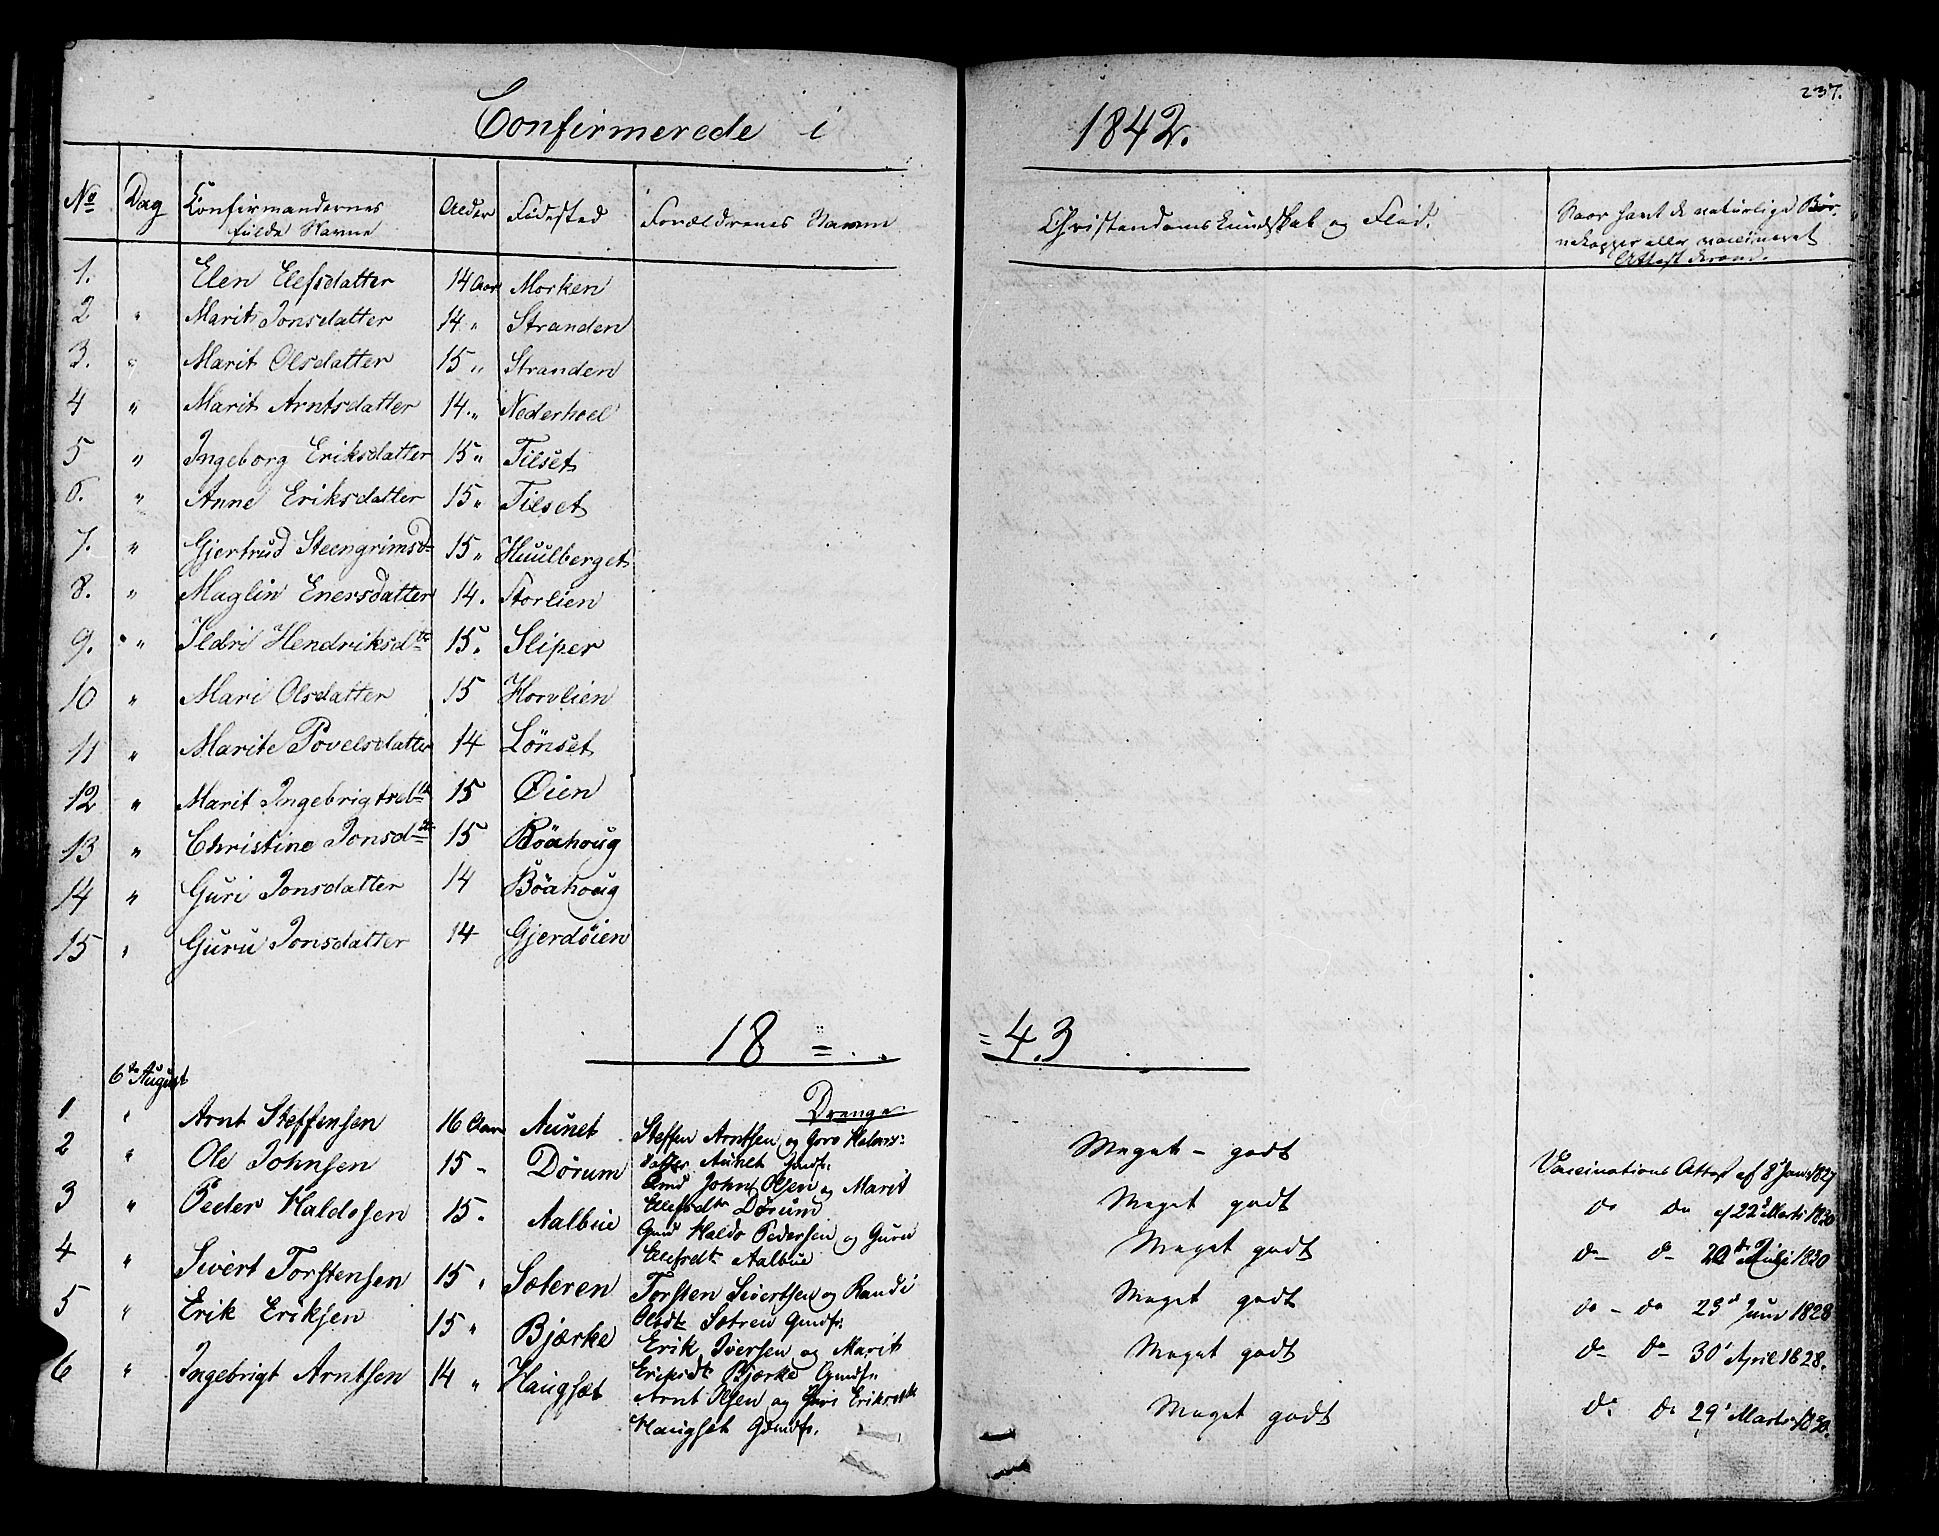 237.
Confirmerede i 1842.
No Dag Confirmandernes fulde Navne Alder Fødested Forældrenes Navne Christendomskundskab og Flid. Naar havt de naturlige Børnekopper eller vaccineret Attest derom.
1. Elen Elefsdatter 14 Aar Morken
2 " Marit Jonsdatter 14 " Stranden
3. " Marit Olsdatter 15 " Stranden
4 " Marit Arntsdatter 14. " Nederhoel
5 " Ingeborg Eriksdatter 15 " Tilset
6. " Anne Eriksdatter 15 " Tilset
7. " Gjertrud Steengrimsd 15 " Huulberget
8. " Maglin Enersdatter 14. Storlien
9. " Ildri Hendriksdtr 15. Sliper
10 " Mari Olsdatter 15 Horvlien
11 " Marite Povelsdatter 14 Lönset
12 " Marit Ingebrigtsdtr 15 Øien
13 " Christine Jonsdtr 15 Böahoug
14 " Guri Jonsdatter 14 Böahoug
15 " Guru Jonsdatter 14 Gjerdöien
18 = = 43
6te August
Drenge
1 " Arnt Steffensen 16 Aar Aunet Steffen Arntsen og Goro Halvors-
datter Aunet Gmdf. Meget - godt Vaccinations Attest af 8 Jan 1827
2 " Ole Johnsen 15 - Dörum Gmd John Olsen og Marit
Elefsdtr Dörum Meget godt do do af 22d Marts 1830
3 " Peder Haldosen 15. Aalbue Gmd Haldo Pedersen og Guru
Elefsdtr Aalbue Meget godt do do Juli 1830
4 " Sivert Torstensen 15 " Sæteren Torsten Sivertsen og Randi
Olsdtr Sætren Gmdf. Meget godt do - do 23d Juni 1828
5 " Erik Eriksen 15 " Bjærke Erik Iversen og Marit
Eriksdtr Bjærke Gmdf. Meget godt do do 30' April 1828.
6 " Ingebrigt Arntsen 14 " Haugset Arnt Olsen og Guri Eriksdtr
Haugset Gmdf. Meget godt do do 29' Marts 1830.